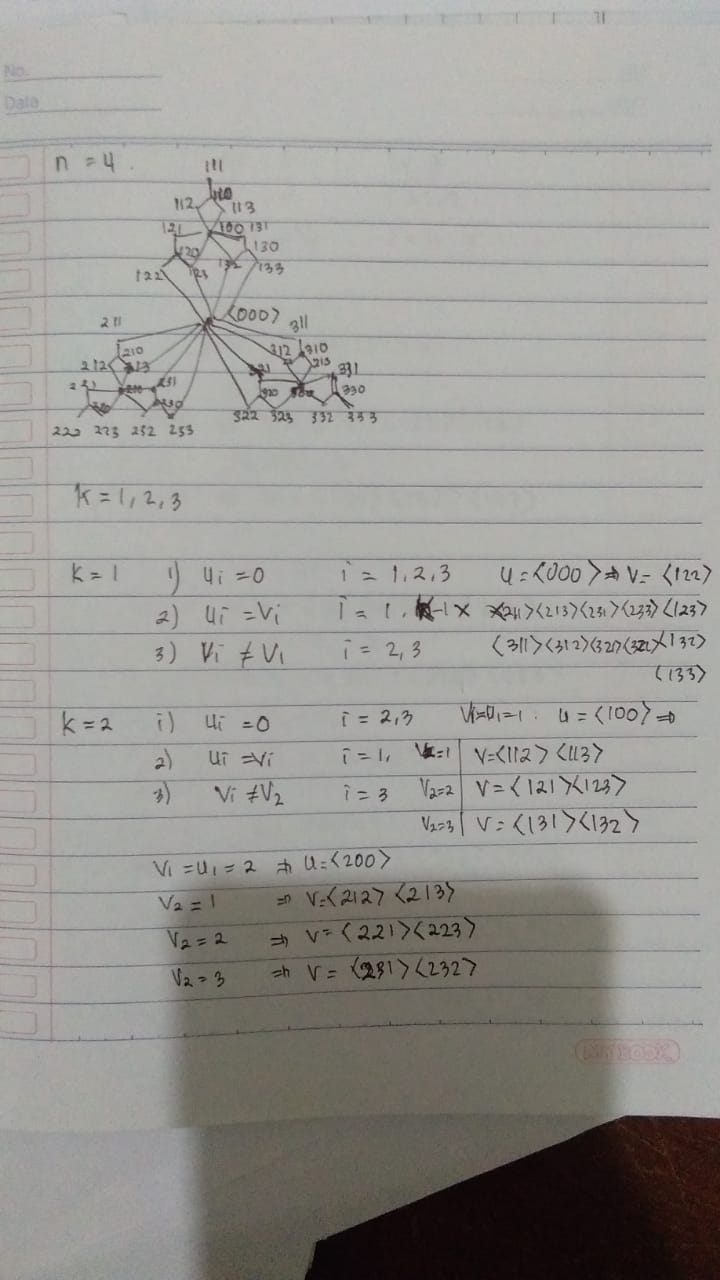 No.
Date
n = 4.
111
110
112 113
121 100 131
120 130
122 123 132 133
<000>
211 311
210 312 310
212 213 313
221 231 321 331
220 230 320 300 330
222 223 232 233 322 323 332 333
k = 1, 2, 3
k = 1 1) ui = 0 i = 1, 2, 3 u = <000> ⇒ v = <122>
2) ui = vi i = 1. <211> <213> <231> <233> <123>
3) vi ≠ v1 i = 2, 3 <311> <312> <321> <322> <132>
<133>
k = 2 1) ui = 0 i = 2,3 v1=u1=1. u = <100> ⇒
2) ui = vi i = 1, v2=1 v=<112> <113>
3) vi ≠ v2 i = 3 v2=2 v = <121> <123>
v2=3 v = <131> <132>
v1 = u1 = 2 ⇒ u = <200>
v2 = 1 ⇒ v = <212> <213>
v2 = 2 ⇒ v = <221> <223>
v2 = 3 ⇒ v = <231> <232>
MYBOOK